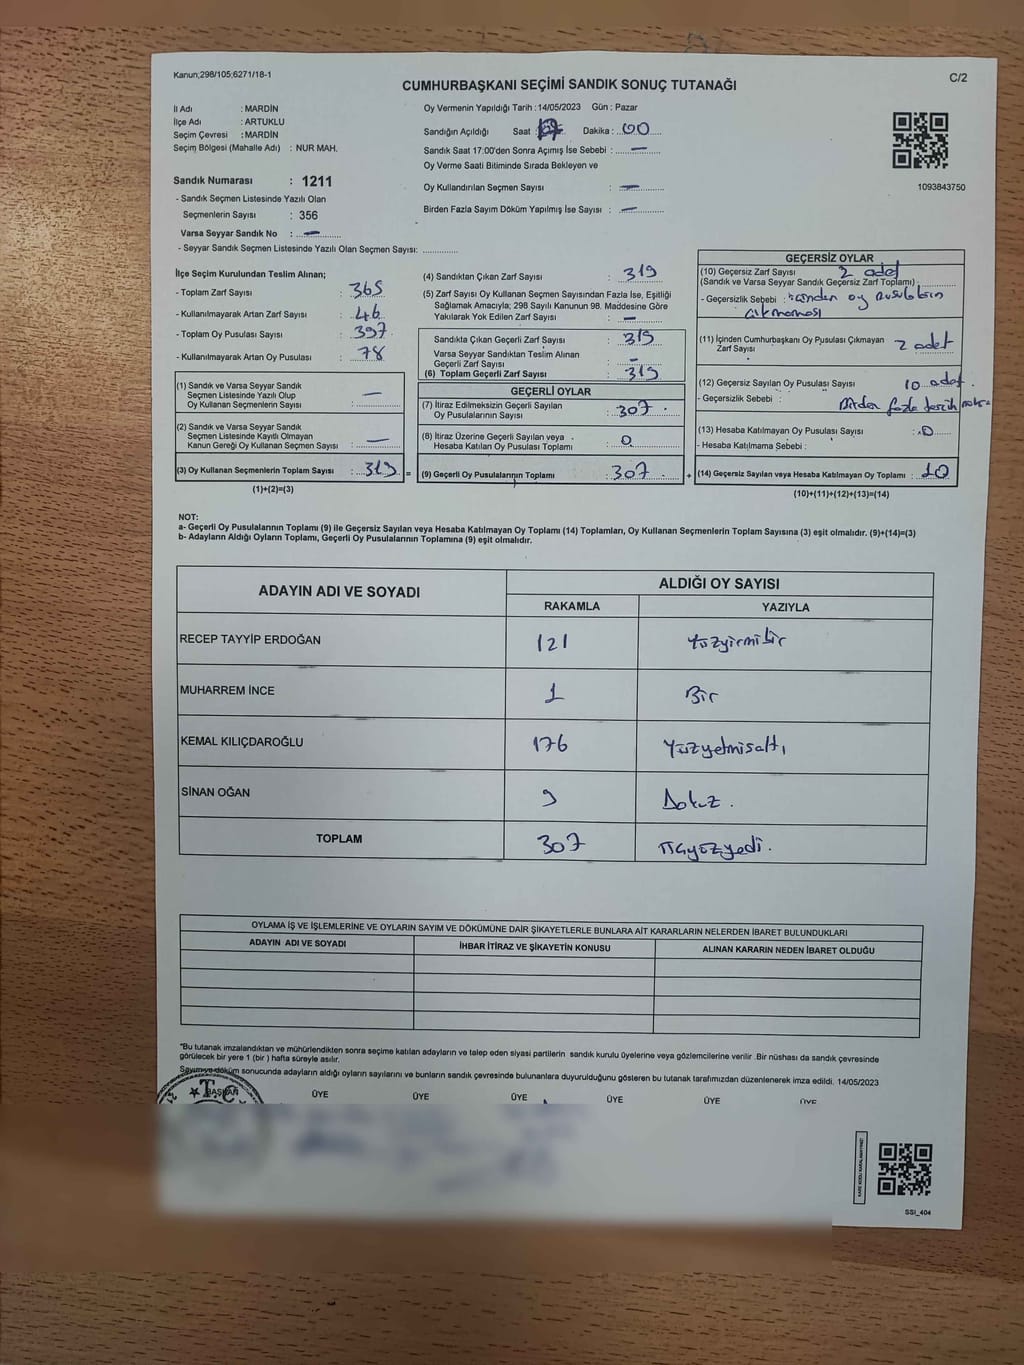 Kanun;298/105;6271/18-1
C/2
CUMHURBAŞKANI SEÇİMİ SANDIK SONUÇ TUTANAĞI
İl Adı : MARDİN
İlçe Adı : ARTUKLU
Seçim Çevresi : MARDİN
Seçim Bölgesi (Mahalle Adı) : NUR MAH.
Sandık Numarası : 1211
- Sandık Seçmen Listesinde Yazılı Olan
Seçmenlerin Sayısı : 356
Varsa Seyyar Sandık No : —
- Seyyar Sandık Seçmen Listesinde Yazılı Olan Seçmen Sayısı: ..............
Oy Vermenin Yapıldığı Tarih : 14/05/2023 Gün : Pazar
Sandığın Açıldığı Saat : Dakika : 00
Sandık Saat 17:00'den Sonra Açımış İse Sebebi : —
Oy Verme Saati Bitiminde Sırada Bekleyen ve
Oy Kullandırılan Seçmen Sayısı : —
Birden Fazla Sayım Döküm Yapılmış İse Sayısı : —
1093843750
İlçe Seçim Kurulundan Teslim Alınan;
- Toplam Zarf Sayısı : 365
- Kullanılmayarak Artan Zarf Sayısı : 46
- Toplam Oy Pusulası Sayısı : 397
- Kullanılmayarak Artan Oy Pusulası : 78
(1) Sandık ve Varsa Seyyar Sandık
Seçmen Listesinde Yazılı Olup
Oy Kullanan Seçmenlerin Sayısı : —
(2) Sandık ve Varsa Seyyar Sandık
Seçmen Listesinde Kayıtlı Olmayan
Kanun Gereği Oy Kullanan Seçmen Sayısı : —
(3) Oy Kullanan Seçmenlerin Toplam Sayısı : 319 =
(1)+(2)=(3)
(4) Sandıktan Çıkan Zarf Sayısı : 319
(5) Zarf Sayısı Oy Kullanan Seçmen Sayısından Fazla İse, Eşitliği
Sağlamak Amacıyla; 298 Sayılı Kanunun 98. Maddesine Göre
Yakılarak Yok Edilen Zarf Sayısı : —
Sandıkta Çıkan Geçerli Zarf Sayısı : 319
Varsa Seyyar Sandıktan Teslim Alınan
Geçerli Zarf Sayısı : —
(6) Toplam Geçerli Zarf Sayısı : 319
GEÇERLİ OYLAR
(7) İtiraz Edilmeksizin Geçerli Sayılan
Oy Pusulalarının Sayısı : 307
(8) İtiraz Üzerine Geçerli Sayılan veya
Hesaba Katılan Oy Pusulası Toplamı : 0
(9) Geçerli Oy Pusulalarının Toplamı : 307 +
GEÇERSİZ OYLAR
(10) Geçersiz Zarf Sayısı : 2 adet
(Sandık ve Varsa Seyyar Sandık Geçersiz Zarf Toplamı)
- Geçersizlik Sebebi : içinden oy pusulaların
çıkmaması
(11) İçinden Cumhurbaşkanı Oy Pusulası Çıkmayan
Zarf Sayısı : 2 adet
(12) Geçersiz Sayılan Oy Pusulası Sayısı : 10 adet
- Geçersizlik Sebebi : Birden fazla tercih
(13) Hesaba Katılmayan Oy Pusulası Sayısı : 0
- Hesaba Katılmama Sebebi :
(14) Geçersiz Sayılan veya Hesaba Katılmayan Oy Toplamı : 10
(10)+(11)+(12)+(13)=(14)
NOT:
a- Geçerli Oy Pusulalarının Toplamı (9) ile Geçersiz Sayılan veya Hesaba Katılmayan Oy Toplamı (14) Toplamları, Oy Kullanan Seçmenlerin Toplam Sayısına (3) eşit olmalıdır. (9)+(14)=(3)
b- Adayların Aldığı Oyların Toplamı, Geçerli Oy Pusulalarının Toplamına (9) eşit olmalıdır.
ADAYIN ADI VE SOYADI
ALDIĞI OY SAYISI
RAKAMLA YAZIYLA
RECEP TAYYİP ERDOĞAN 121 Yüzyirmibir
MUHARREM İNCE 1 Bir
KEMAL KILIÇDAROĞLU 176 Yüzyetmişaltı
SİNAN OĞAN 9 Dokuz.
TOPLAM 307 Üçyüzyedi.
OYLAMA İŞ VE İŞLEMLERİNE VE OYLARIN SAYIM VE DÖKÜMÜNE DAİR ŞİKAYETLERLE BUNLARA AİT KARARLARIN NELERDEN İBARET BULUNDUKLARI
ADAYIN ADI VE SOYADI İHBAR İTİRAZ VE ŞİKAYETİN KONUSU ALINAN KARARIN NEDEN İBARET OLDUĞU
"Bu tutanak imzalandıktan ve mühürlendikten sonra seçime katılan adayların ve talep eden siyasi partilerin sandık kurulu üyelerine veya gözlemcilerine verilir .Bir nüshası da sandık çevresinde
görülecek bir yere 1 (bir ) hafta süreyle asılır.
Sayım ve döküm sonucunda adayların aldığı oyların sayılarını ve bunların sandık çevresinde bulunanlara duyurulduğunu gösteren bu tutanak tarafımızdan düzenlenerek imza edildi. 14/05/2023
T.C.
BAŞKAN ÜYE ÜYE ÜYE ÜYE ÜYE ÜYE
SSI_404